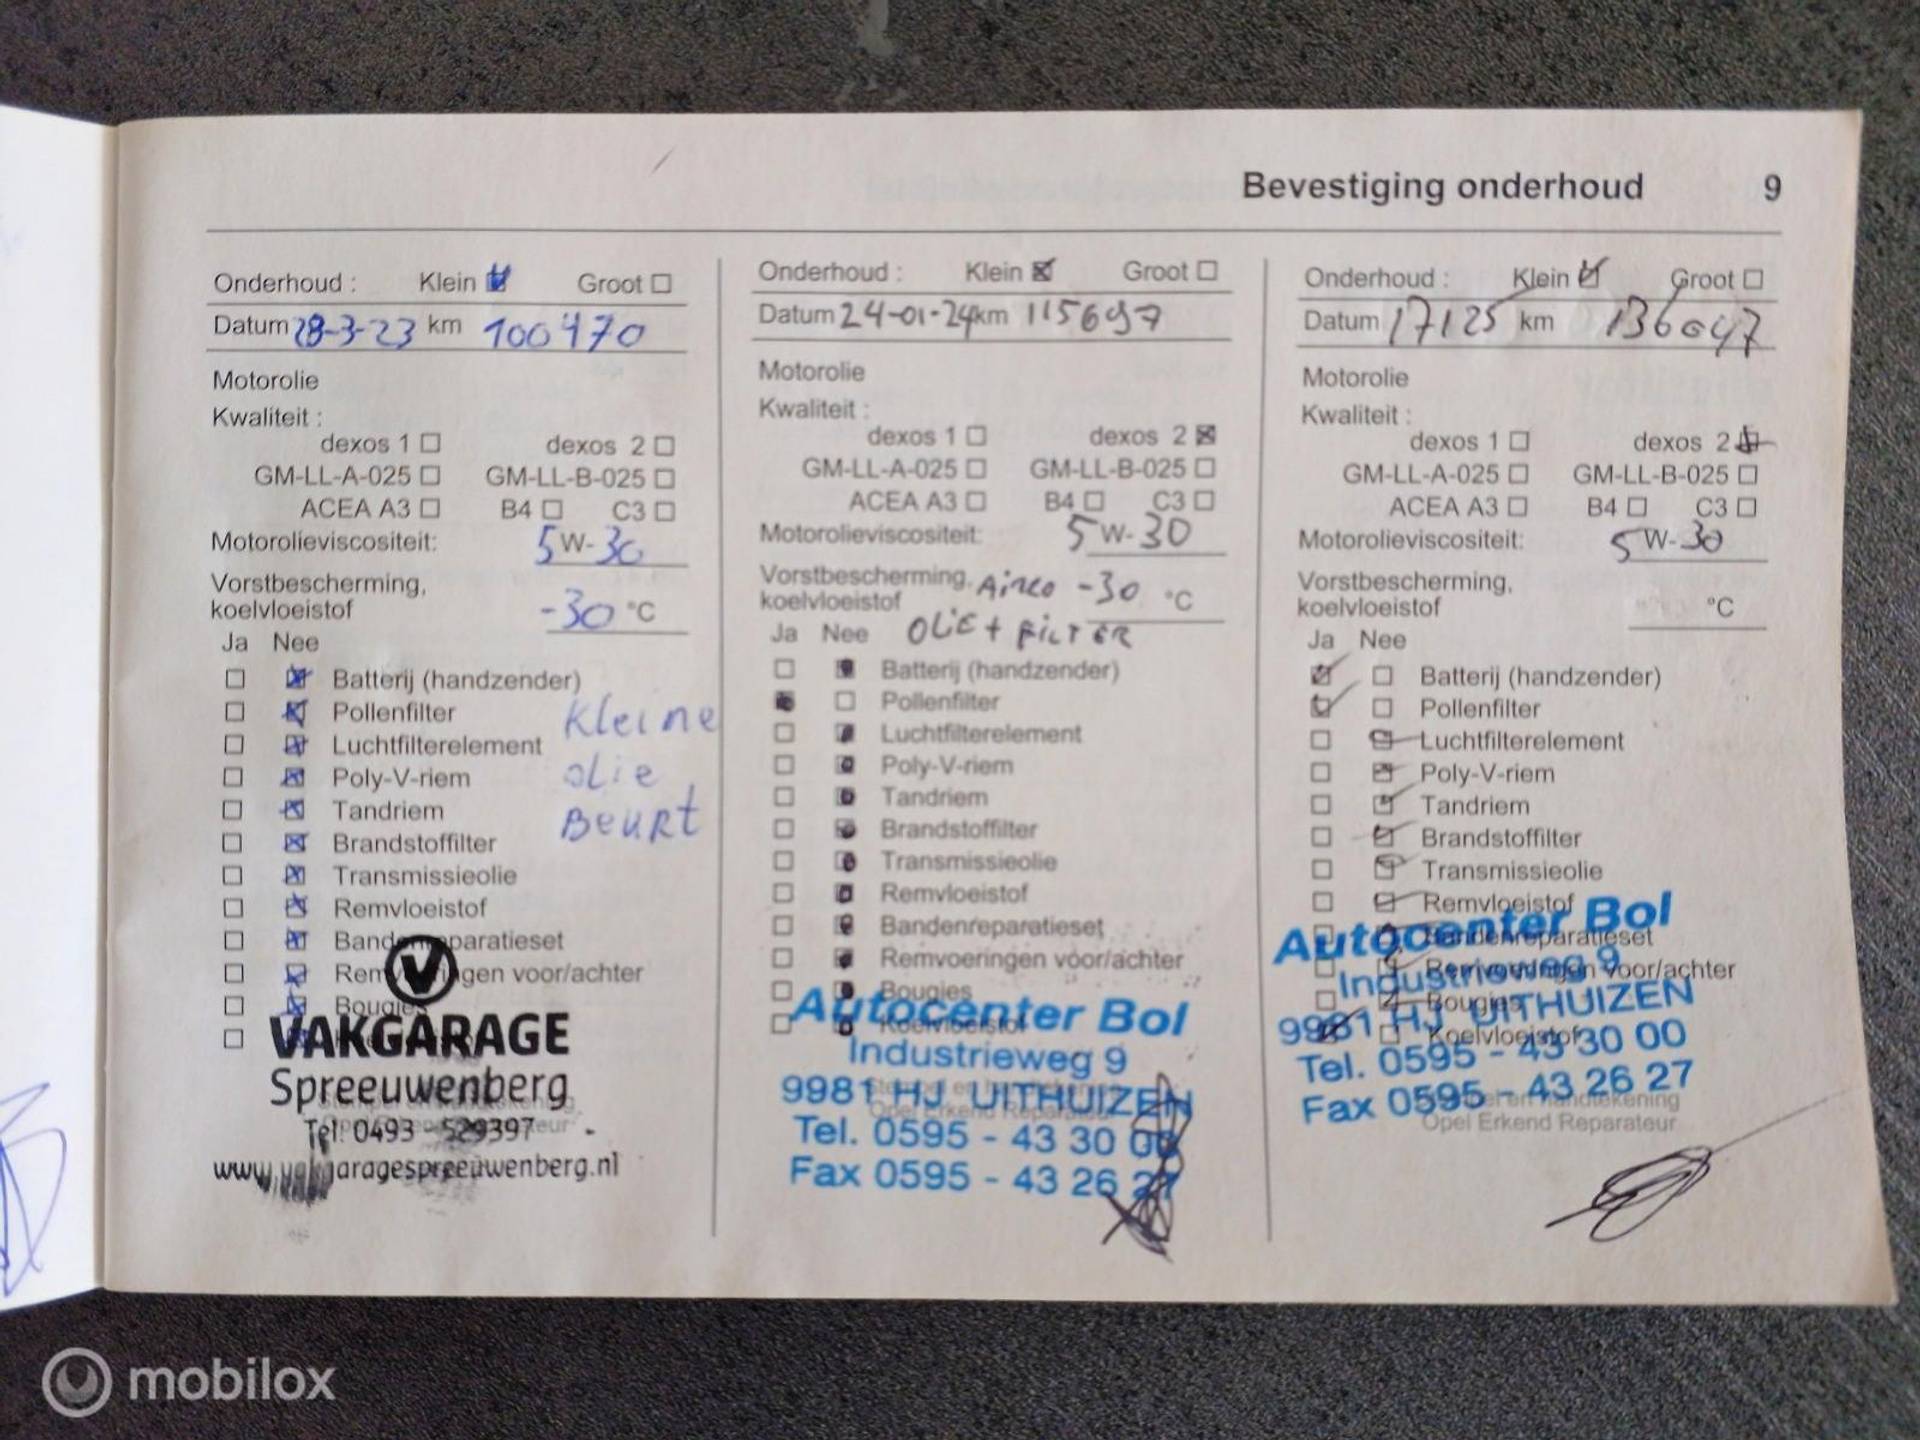 Bevestiging onderhoud 9
Onderhoud : Klein Groot
Datum 28-3-23 km 100470
Motorolie
Kwaliteit :
dexos 1 dexos 2
GM-LL-A-025 GM-LL-B-025
ACEA A3 B4 C3
Motorolieviscositeit: 5 W-30
Vorstbescherming,
koelvloeistof -30 °C
Ja Nee
Batterij (handzender)
Pollenfilter
Luchtfilterelement
Poly-V-riem
Tandriem
Brandstoffilter
Transmissieolie
Remvloeistof
Bandenreparatieset
Remvoeringen voor/achter
Bougies
Kleine
olie
Beurt
VAKGARAGE
Spreeuwenberg
Tel. 0493 - 529397
www.vakgaragespreeuwenberg.nl
Onderhoud : Klein Groot
Datum 24-01-24 km 115697
Motorolie
Kwaliteit :
dexos 1 dexos 2
GM-LL-A-025 GM-LL-B-025
ACEA A3 B4 C3
Motorolieviscositeit: 5 W-30
Vorstbescherming, Airco -30 °C
koelvloeistof
Ja Nee OLIE + FILTER
Batterij (handzender)
Pollenfilter
Luchtfilterelement
Poly-V-riem
Tandriem
Brandstoffilter
Transmissieolie
Remvloeistof
Bandenreparatieset
Remvoeringen voor/achter
Bougies
Koelvloeistof
Autocenter Bol
Industrieweg 9
9981 HJ UITHUIZEN
Tel. 0595 - 43 30 00
Fax 0595 - 43 26 27
Onderhoud : Klein Groot
Datum 17125 km 136047
Motorolie
Kwaliteit :
dexos 1 dexos 2
GM-LL-A-025 GM-LL-B-025
ACEA A3 B4 C3
Motorolieviscositeit: 5 W-30
Vorstbescherming,
koelvloeistof °C
Ja Nee
Batterij (handzender)
Pollenfilter
Luchtfilterelement
Poly-V-riem
Tandriem
Brandstoffilter
Transmissieolie
Remvloeistof
Bandenreparatieset
Remvoeringen voor/achter
Bougies
Koelvloeistof
Autocenter Bol
Industrieweg 9
9981 HJ UITHUIZEN
Tel. 0595 - 43 30 00
Fax 0595 - 43 26 27
Stempel en handtekening
Opel Erkend Reparateur
mobilox